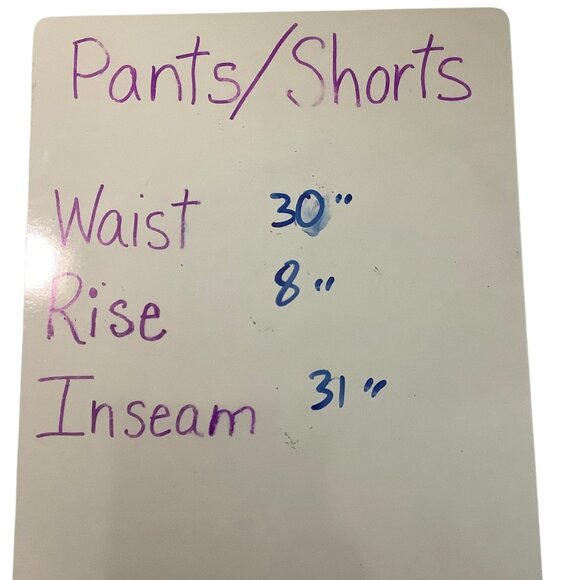 Pants/Shorts
Waist 30"
Rise 8"
Inseam 31"